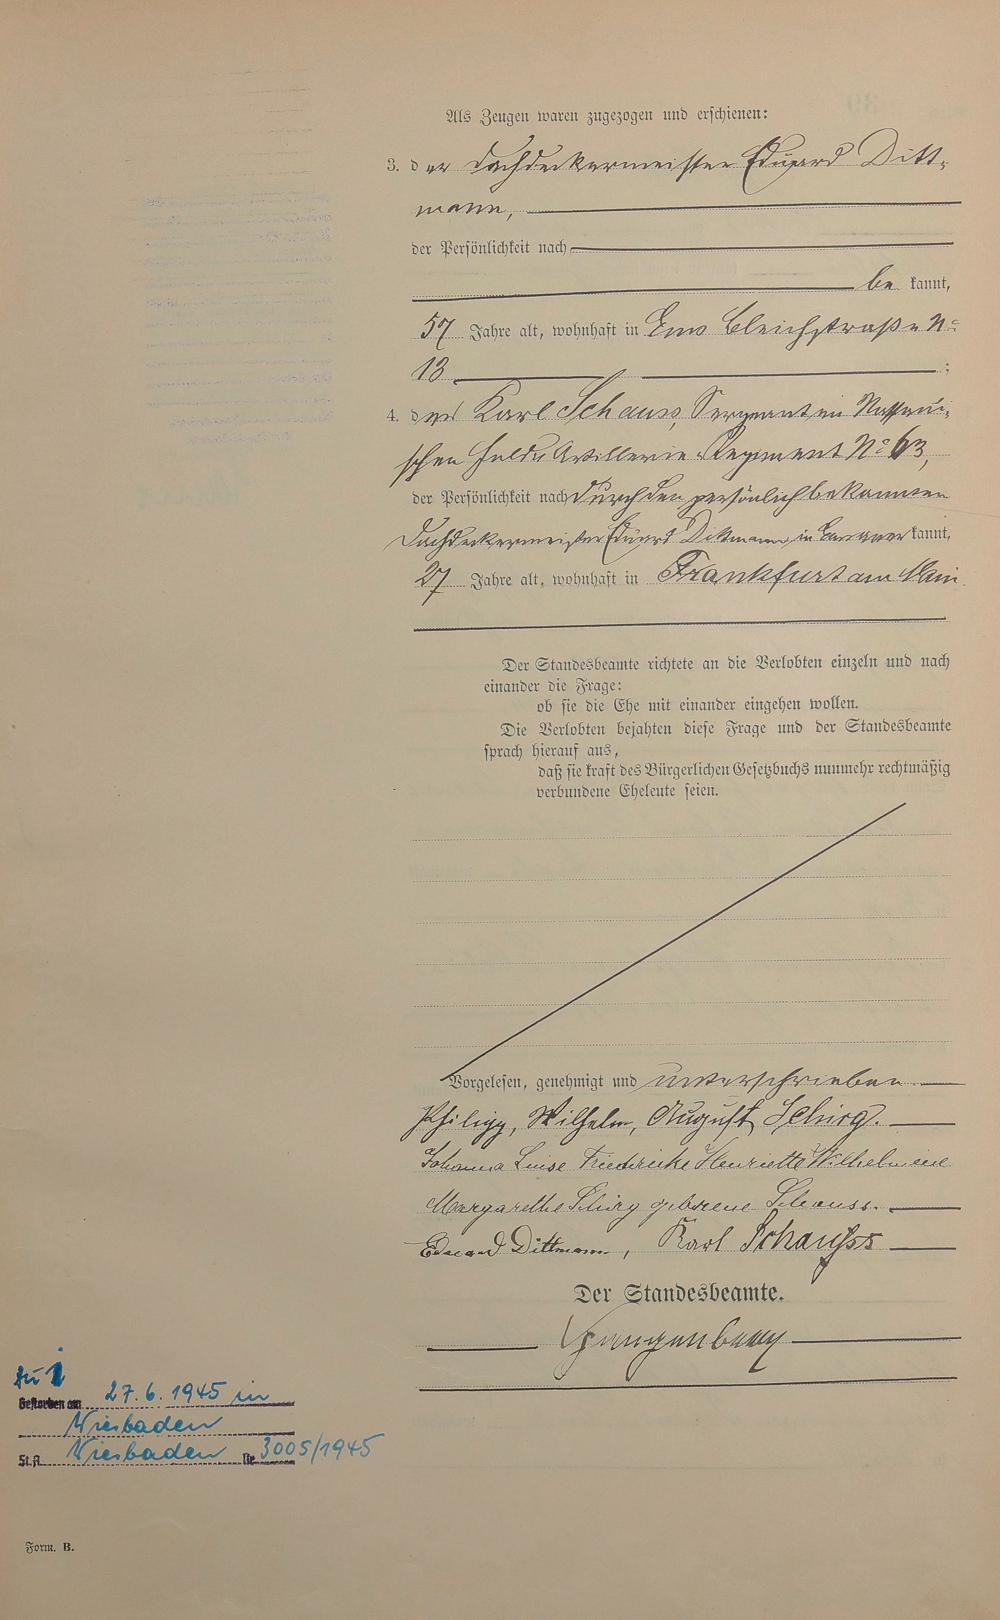 Als Zeugen waren zugezogen und erschienen:
3. der Dachdeckermeister Eduard Ditt-
mann,
der Persönlichkeit nach
be kannt,
57 Jahre alt, wohnhaft in Ems Bleichstraße No
13 ;
4. der Karl Schauss, Sergeant im Nassaui-
schen Feld-Artillerie-Regiment No 63,
der Persönlichkeit nach durch den persönlich bekannten
Dachdeckermeister Eduard Dittmann, in Ems aner kannt,
27 Jahre alt, wohnhaft in Frankfurt am Main
Der Standesbeamte richtete an die Verlobten einzeln und nach
einander die Frage:
ob sie die Ehe mit einander eingehen wollen.
Die Verlobten bejahten diese Frage und der Standesbeamte
sprach hierauf aus,
daß sie kraft des Bürgerlichen Gesetzbuchs nunmehr rechtmäßig
verbundene Eheleute seien.
Vorgelesen, genehmigt und unterschrieben
Philipp, Wilhelm, August Schirg.
Johanna Luise Friedericke Henriette Wilhelmine
Margarethe Schirg geborene Schauss.
Eduard Dittmann, Karl Schauss
Der Standesbeamte.
Zu 1
Gestorben am 27.6.1945 in
Wiesbaden
St.A. Wiesbaden Nr. 3005/1945
Form. B.